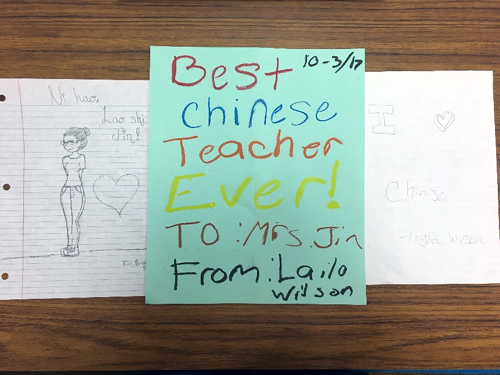 Ni hao,
Lao shi
Jin!
Best
10-3/17
Chinese
Teacher
Ever!
TO: Mrs. Jin
From: Laila
Wilson
I
Chinese
Wilson